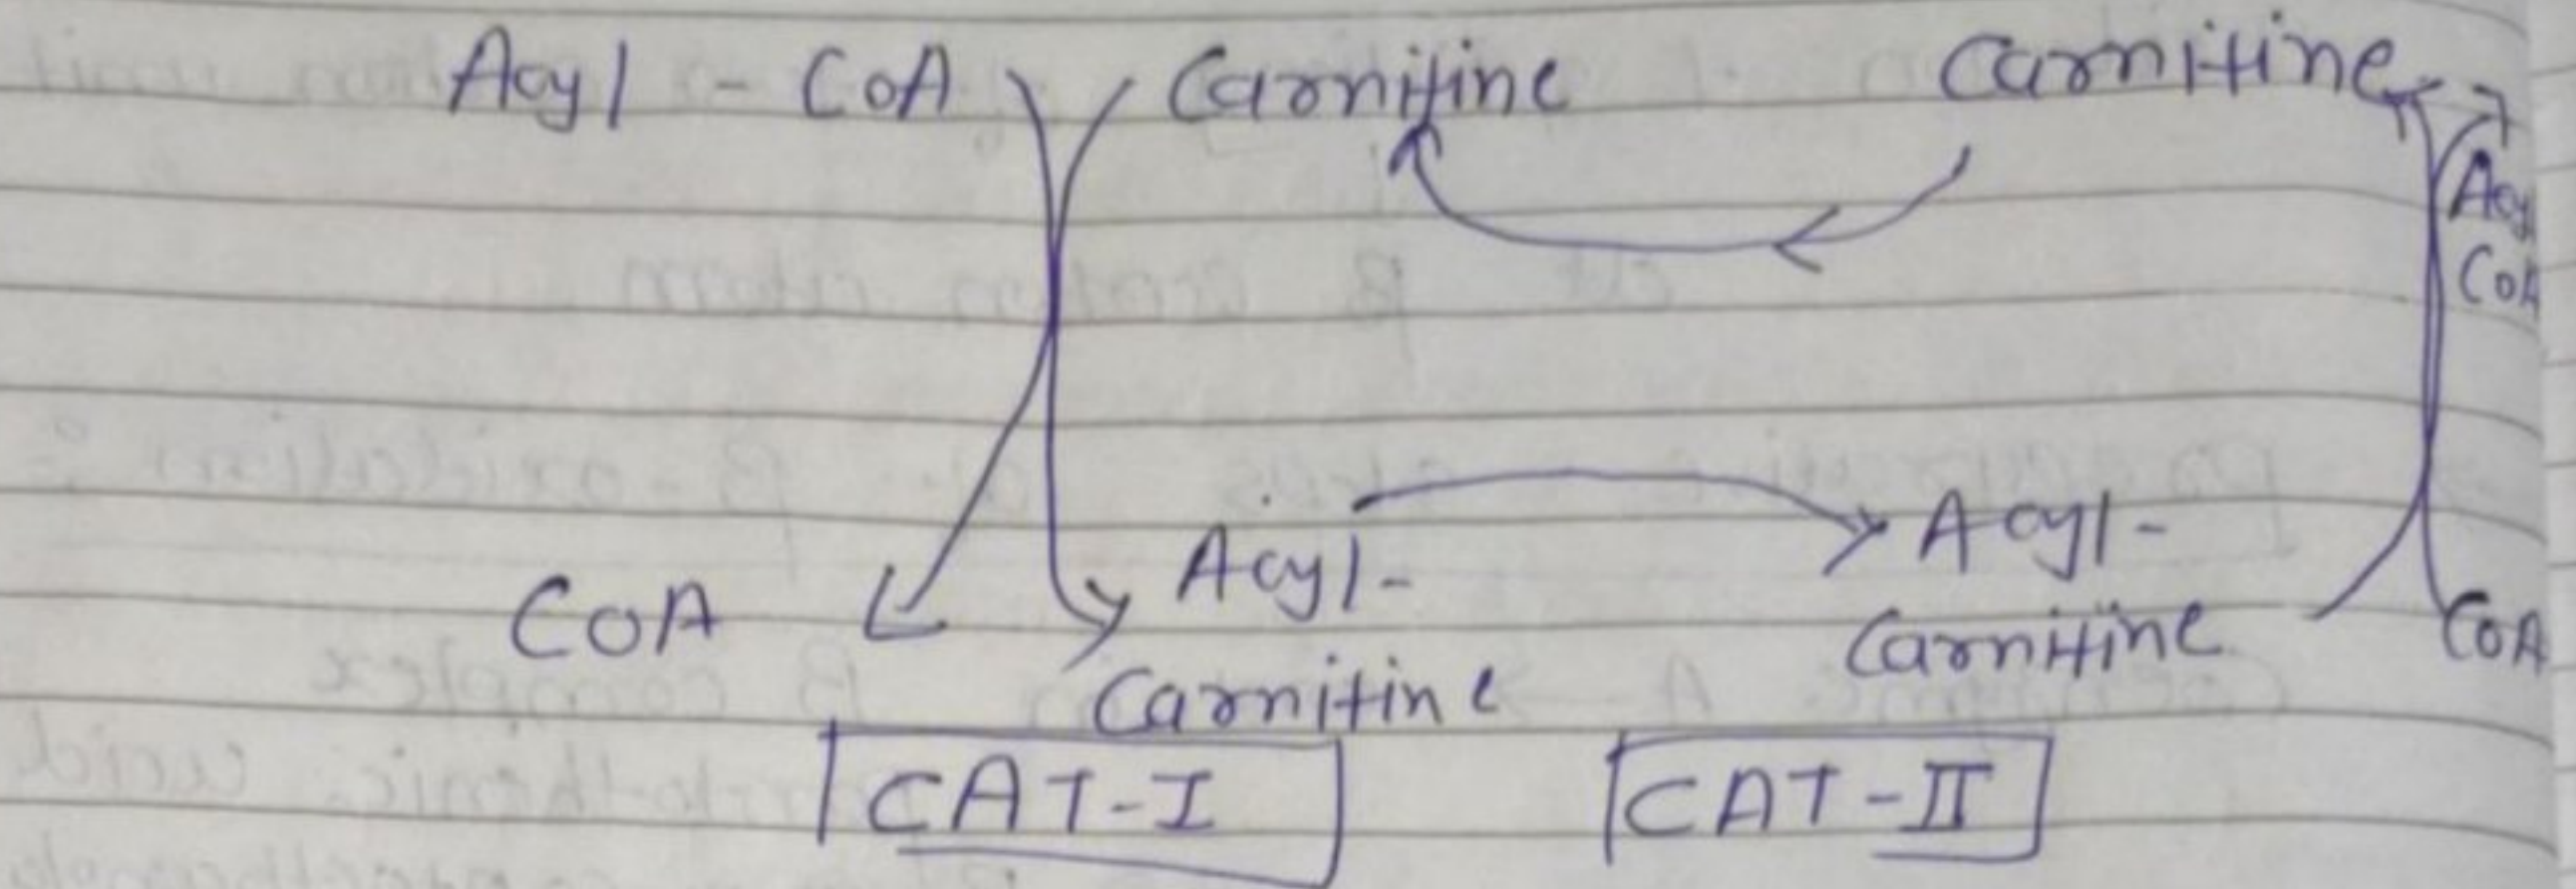 Acyl - CoA Carnitine Carnitine
Acyl
CoA
CoA Acyl- Acyl-
Carnitine Carnitine CoA
CAT-I CAT-II